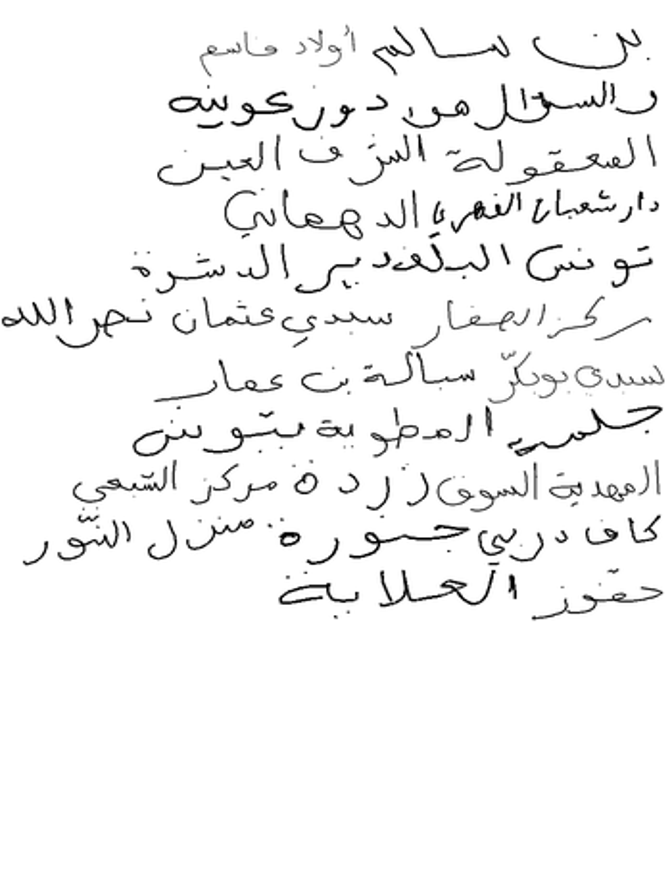 بن سالم أولاد قاسم
والسؤال من دوز عوينه
المعقولة الشرف العين
دار شعبان الفهري الدهماني
تونس البلفدير الدشرة
مركز الصفار سيدي عثمان نصر الله
سيدي بوبكرّ سبالة بن عمار
جلسة المطوية بتونس
المهدية السوق زردة مركز الشبعي
كاف دربي جنورة منزل النّور
حفوز العلاية